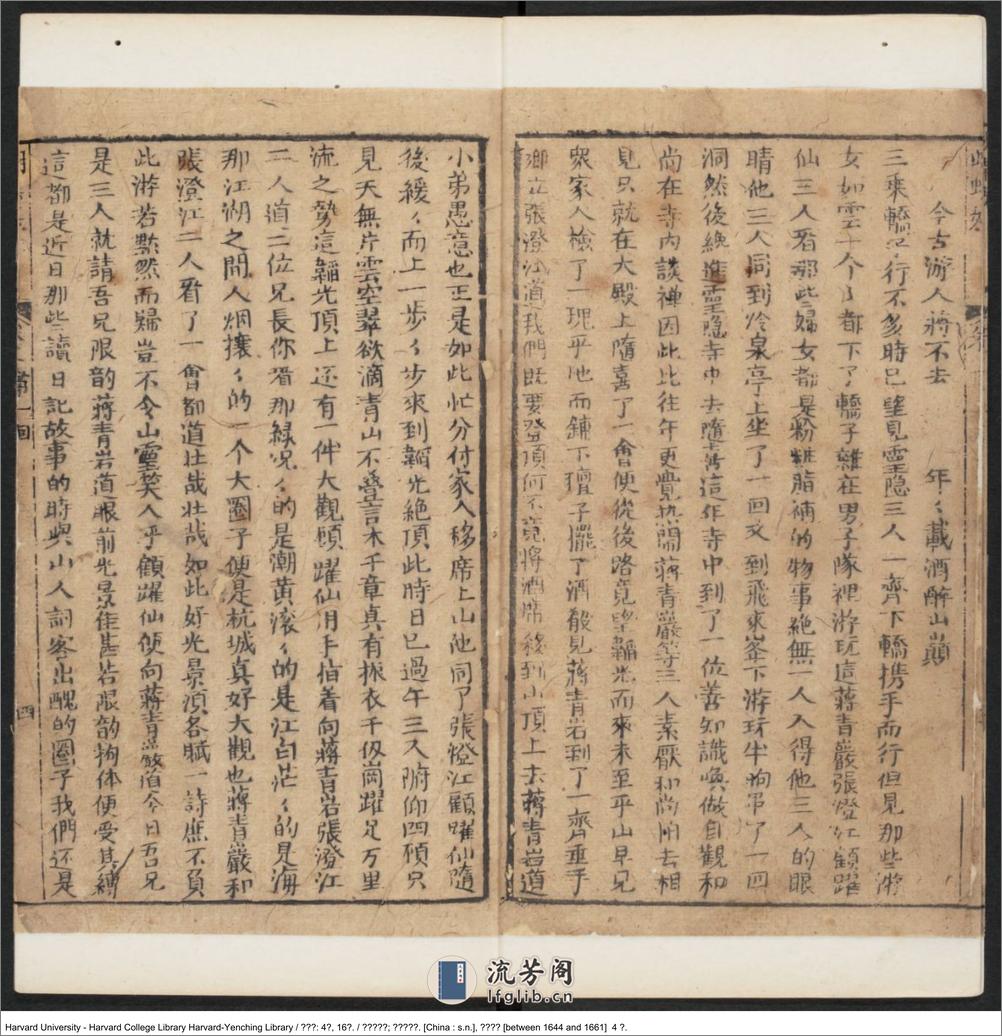 今古游人蔣不去　年〻載酒醉山巔
三乘轎子行不多時已望見靈隐三人一齊下轎携手而行但見那些游
女如雲十个了都下了轎子雜在男子隊裡游玩這蔣青巖張澄江顧躍
仙三人看那些婦女都是粉粧脂補的物事絶無一人入得他三人的眼
睛他三人同到冷泉亭上坐了一回又到飛來峯下游玩半晌吊了一回
洞然後纔進靈隐寺中去隨喜這年寺中到了一位善知識喚做自觀和
尚在寺内談禅因此比往年更覺热閙蔣青巖等三人素厭和尚怕去相
見只就在大殿上隨喜了一會便從後路竟望韜光而來未至半山早見
衆家人檢了一塊平地而鋪下氊子擺了酒殽見蔣青岩到了一齊垂手
鄉立張澄江道我們既要登頂何不竟將酒席移到山頂上去蔣青岩道
小弟愚意也正是如此忙分付家人移席上山他同了張澄江顧躍仙隨
後緩〻而上一步〻步來到韜光絶頂此時日已過午三人俯仰四碩只
見天無片雲空翠欲滴青山不叠言木千章真有振衣千仭崗躍足万里
流之勢這韜光頂上还有一件大觀顧躍仙用手指着向蔣青岩張澄江
二人道二位兄長你看那緑况〻的是潮黄滚〻的是江白茫〻的是海
那江湖之間人烟攘〻的一个大圈子便是杭城真好大觀也蔣青巖和
張澄江二人看了一會都道壮哉壮哉如此好光景湏各賦一詩庶不負
此游若黙然而歸豈不令山靈笑人乎顧躍仙便向蔣青巖道今日吾兄
是三人就請吾兄限韵蔣青岩道眼前光景佳甚若限韵拘体便受其縛
這都是近日那些讀日記故事的時與山人詞客出醜的圈子我們还是
四
流芳阁
lfglib.cn
Harvard University - Harvard College Library Harvard-Yenching Library / ???: 4?, 16?. / ?????; ?????. [China : s.n.], ???? [between 1644 and 1661] 4 ?.